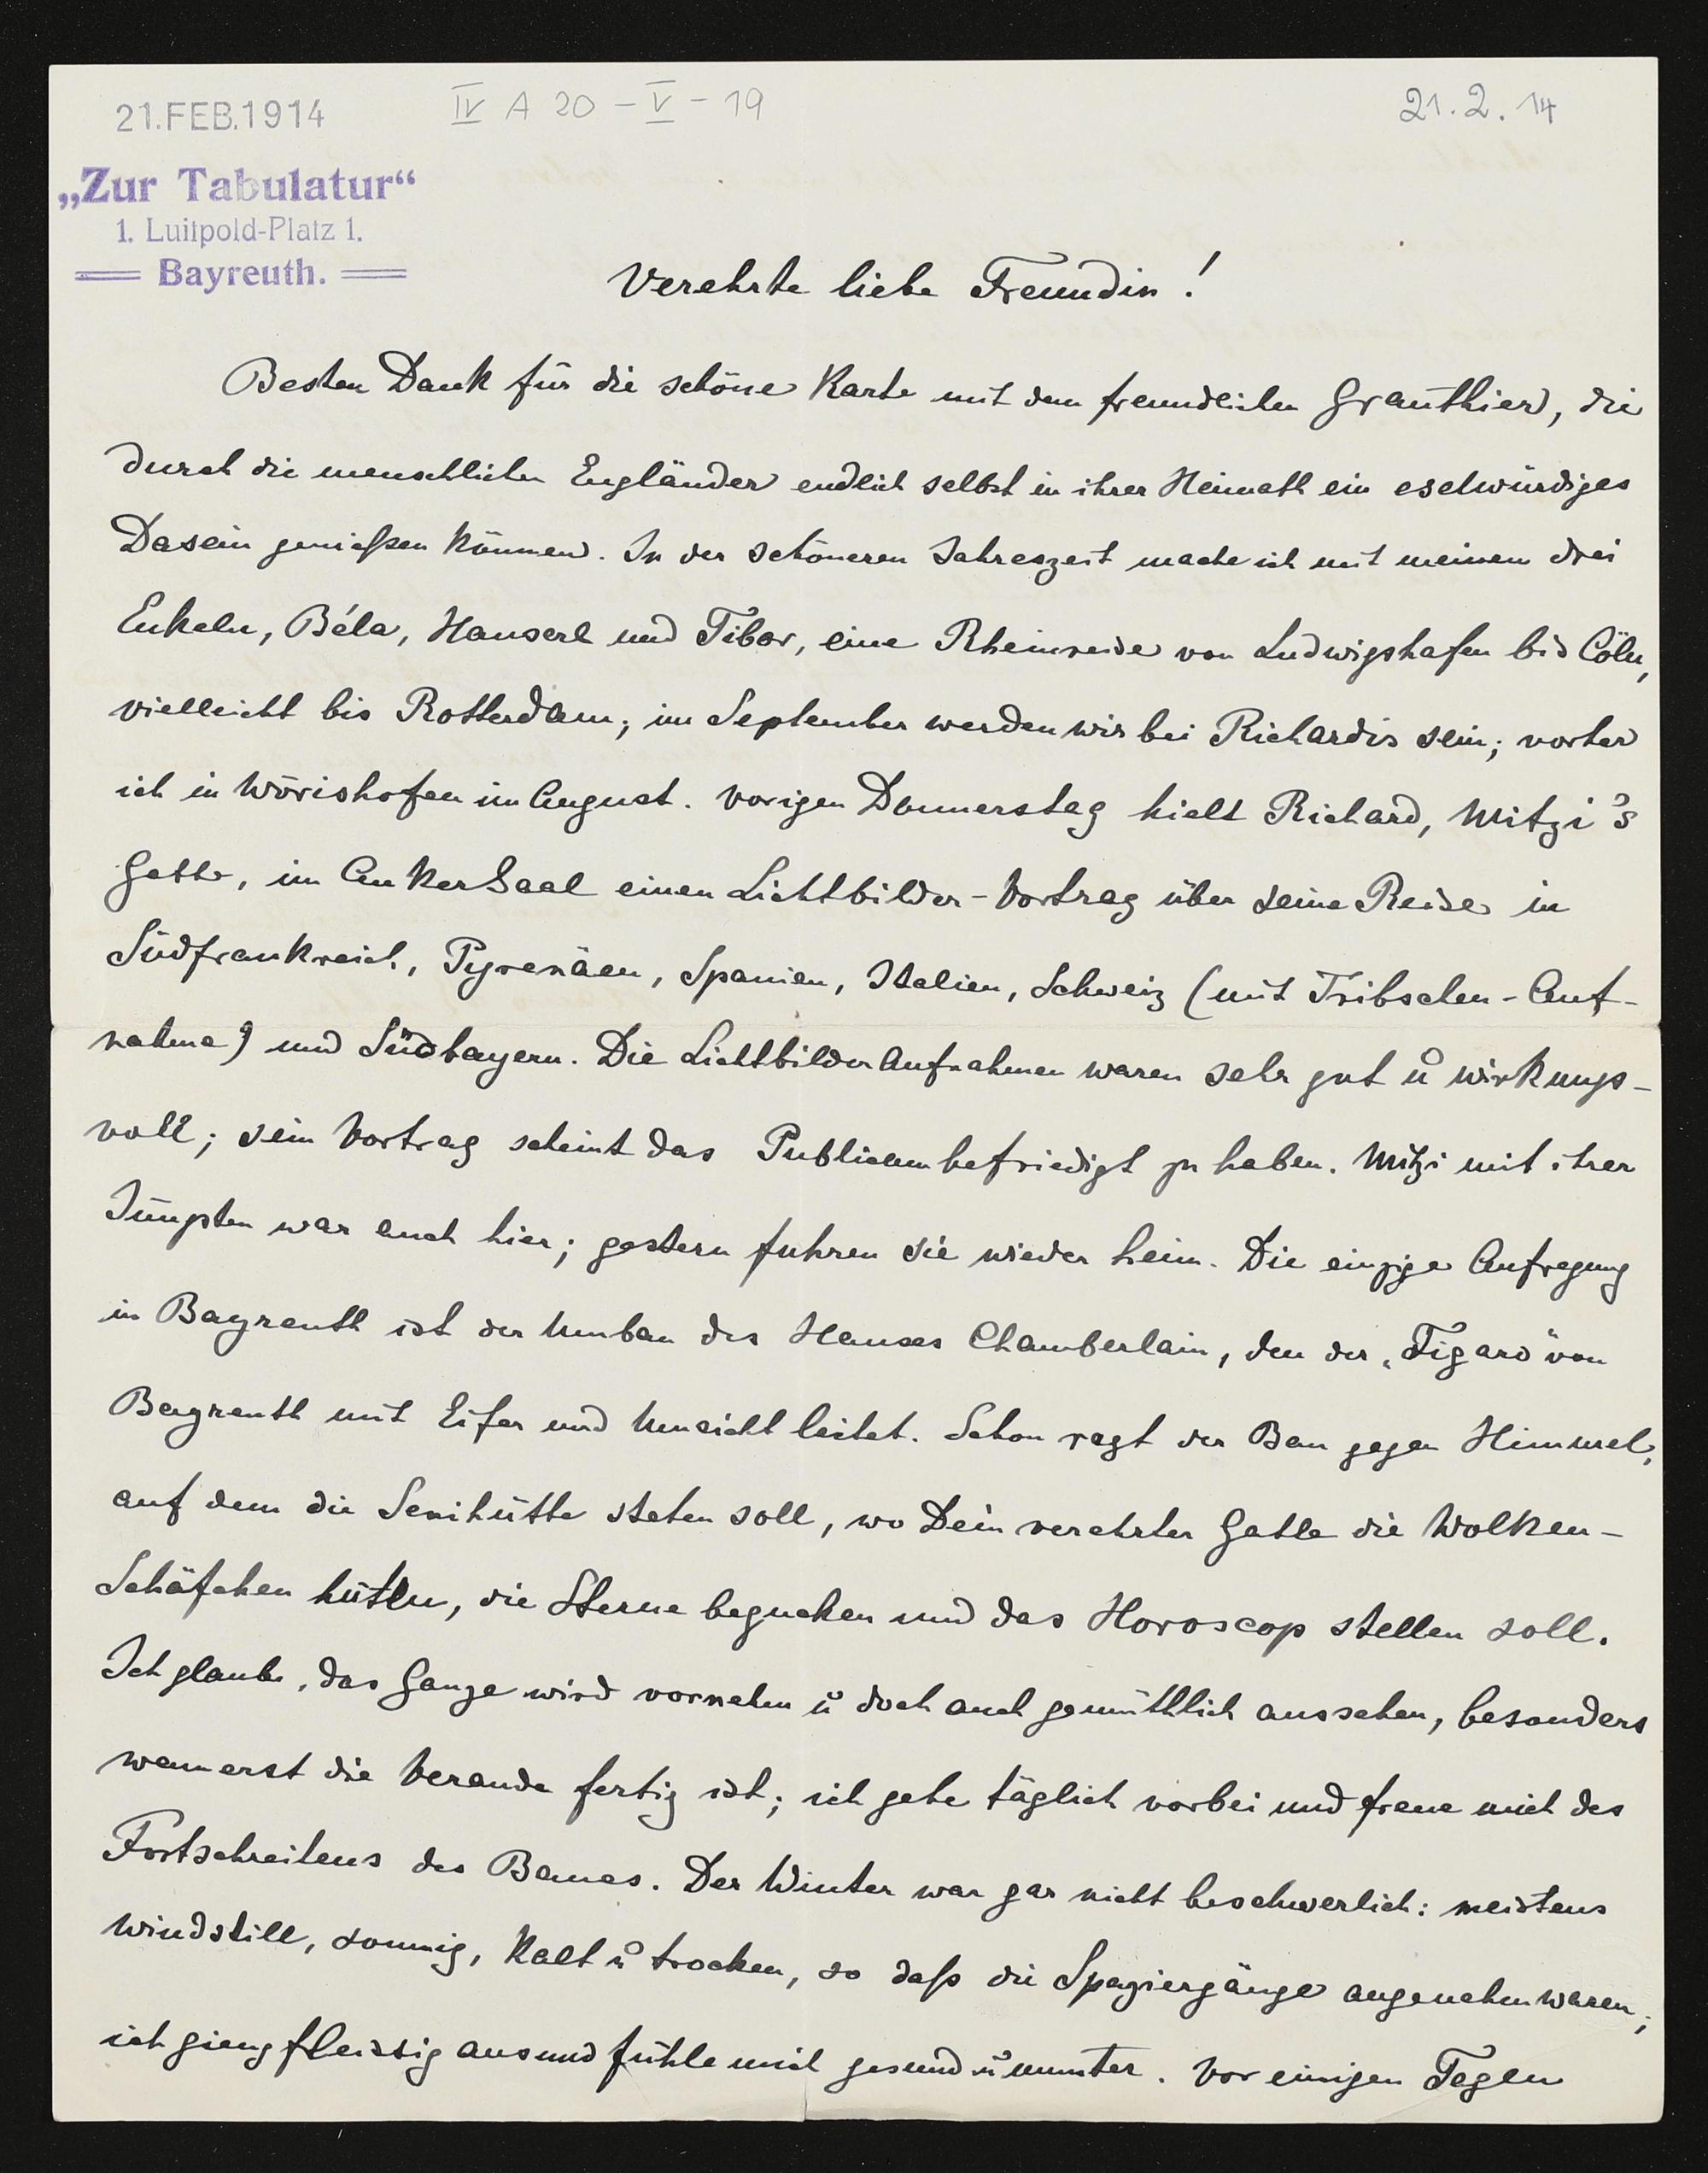 21.FEB.1914
IV A 20 - V - 19
21.2.14
„Zur Tabulatur“
1. Luitpold-Platz 1.
Bayreuth.
Verehrte liebe Freundin!
Besten Dank für die schöne Karte mit den freundlichen Grauthier, die
durch die menschlichen Engländer endlich selbst in ihrer Heimath ein eselwürdiges
Dasein genießen können. In der schöneren Jahreszeit mache ich mit meinen drei
Enkeln, Béla, Hanserl und Tibor, eine Rheinreise von Ludwigshafen bis Cöln,
vielleicht bis Rotterdam; im September werden wir bei Richardis sein; vorher
ich in Wörishofen im August. Vorigen Donnerstag hielt Richard, Mitzi's
Gatte, im Ankersaal einen Lichtbilder-Vortrag über seine Reise in
Südfrankreich, Pyrenäen, Spanien, Italien, Schweiz (mit Tribschen-Auf-
nahme) und Südbayern. Die Lichtbilderaufnahmen waren sehr gut u wirkungs-
voll; sein Vortrag scheint das Publicum befriedigt zu haben. Mitzi mit ihrer
Jüngsten war auch hier; gestern fuhren sie wieder heim. Die einzige Aufregung
in Bayreuth ist der Umbau des Hauses Chamberlain, den der „Figaro“ von
Bayreuth mit Eifer und Umsicht leitet. Schon ragt der Bau gegen Himmel,
auf dem die Senihütte stehen soll, wo Dein verehrter Gatte die Wolken-
Schäfchen hüten, die Sterne begucken und das Horoscop stellen soll.
Ich glaube, das Ganze wird vornehm u doch auch gemüthlich aussehen, besonders
wenn erst die Veranda fertig ist; ich gehe täglich vorbei und freue mich des
Fortschreitens des Baues. Der Winter war gar nicht beschwerlich: meistens
windstill, sonnig, kalt u trocken, so daß die Spaziergänge angenehm waren;
ich gieng fleissig aus und fühle mich gesund u munter. Vor einigen Tagen